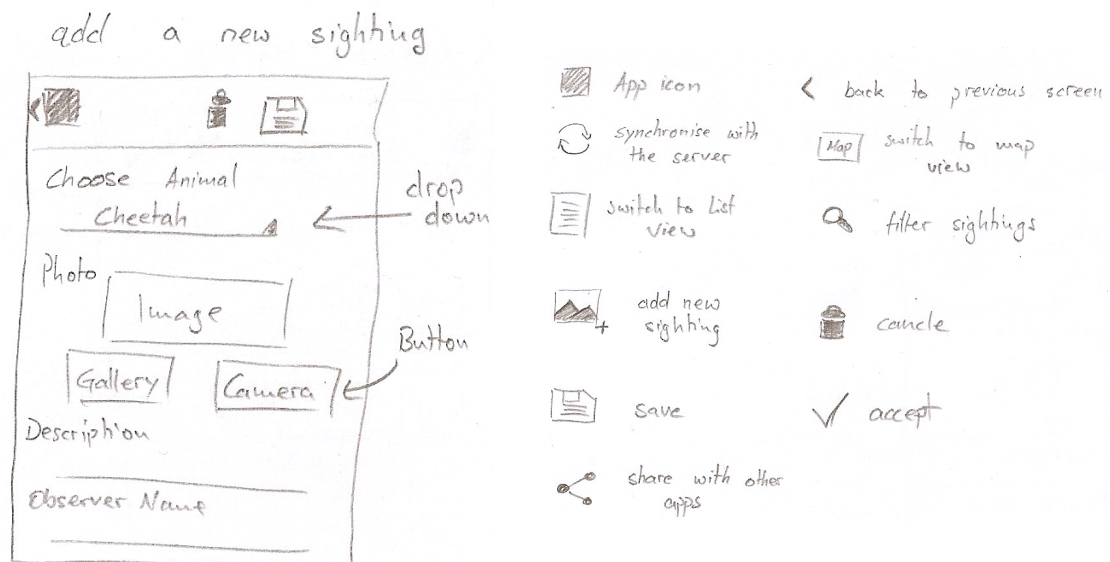 add a new sighting
Choose Animal
Cheetah
drop
down
Photo
Image
Button
Gallery
Camera
Description
Observer Name
App icon
synchronise with
the server
switch to List
view
add new
sighting
save
share with other
apps
< back to previous screen
Map
switch to map
view
filter sightings
cancle
accept